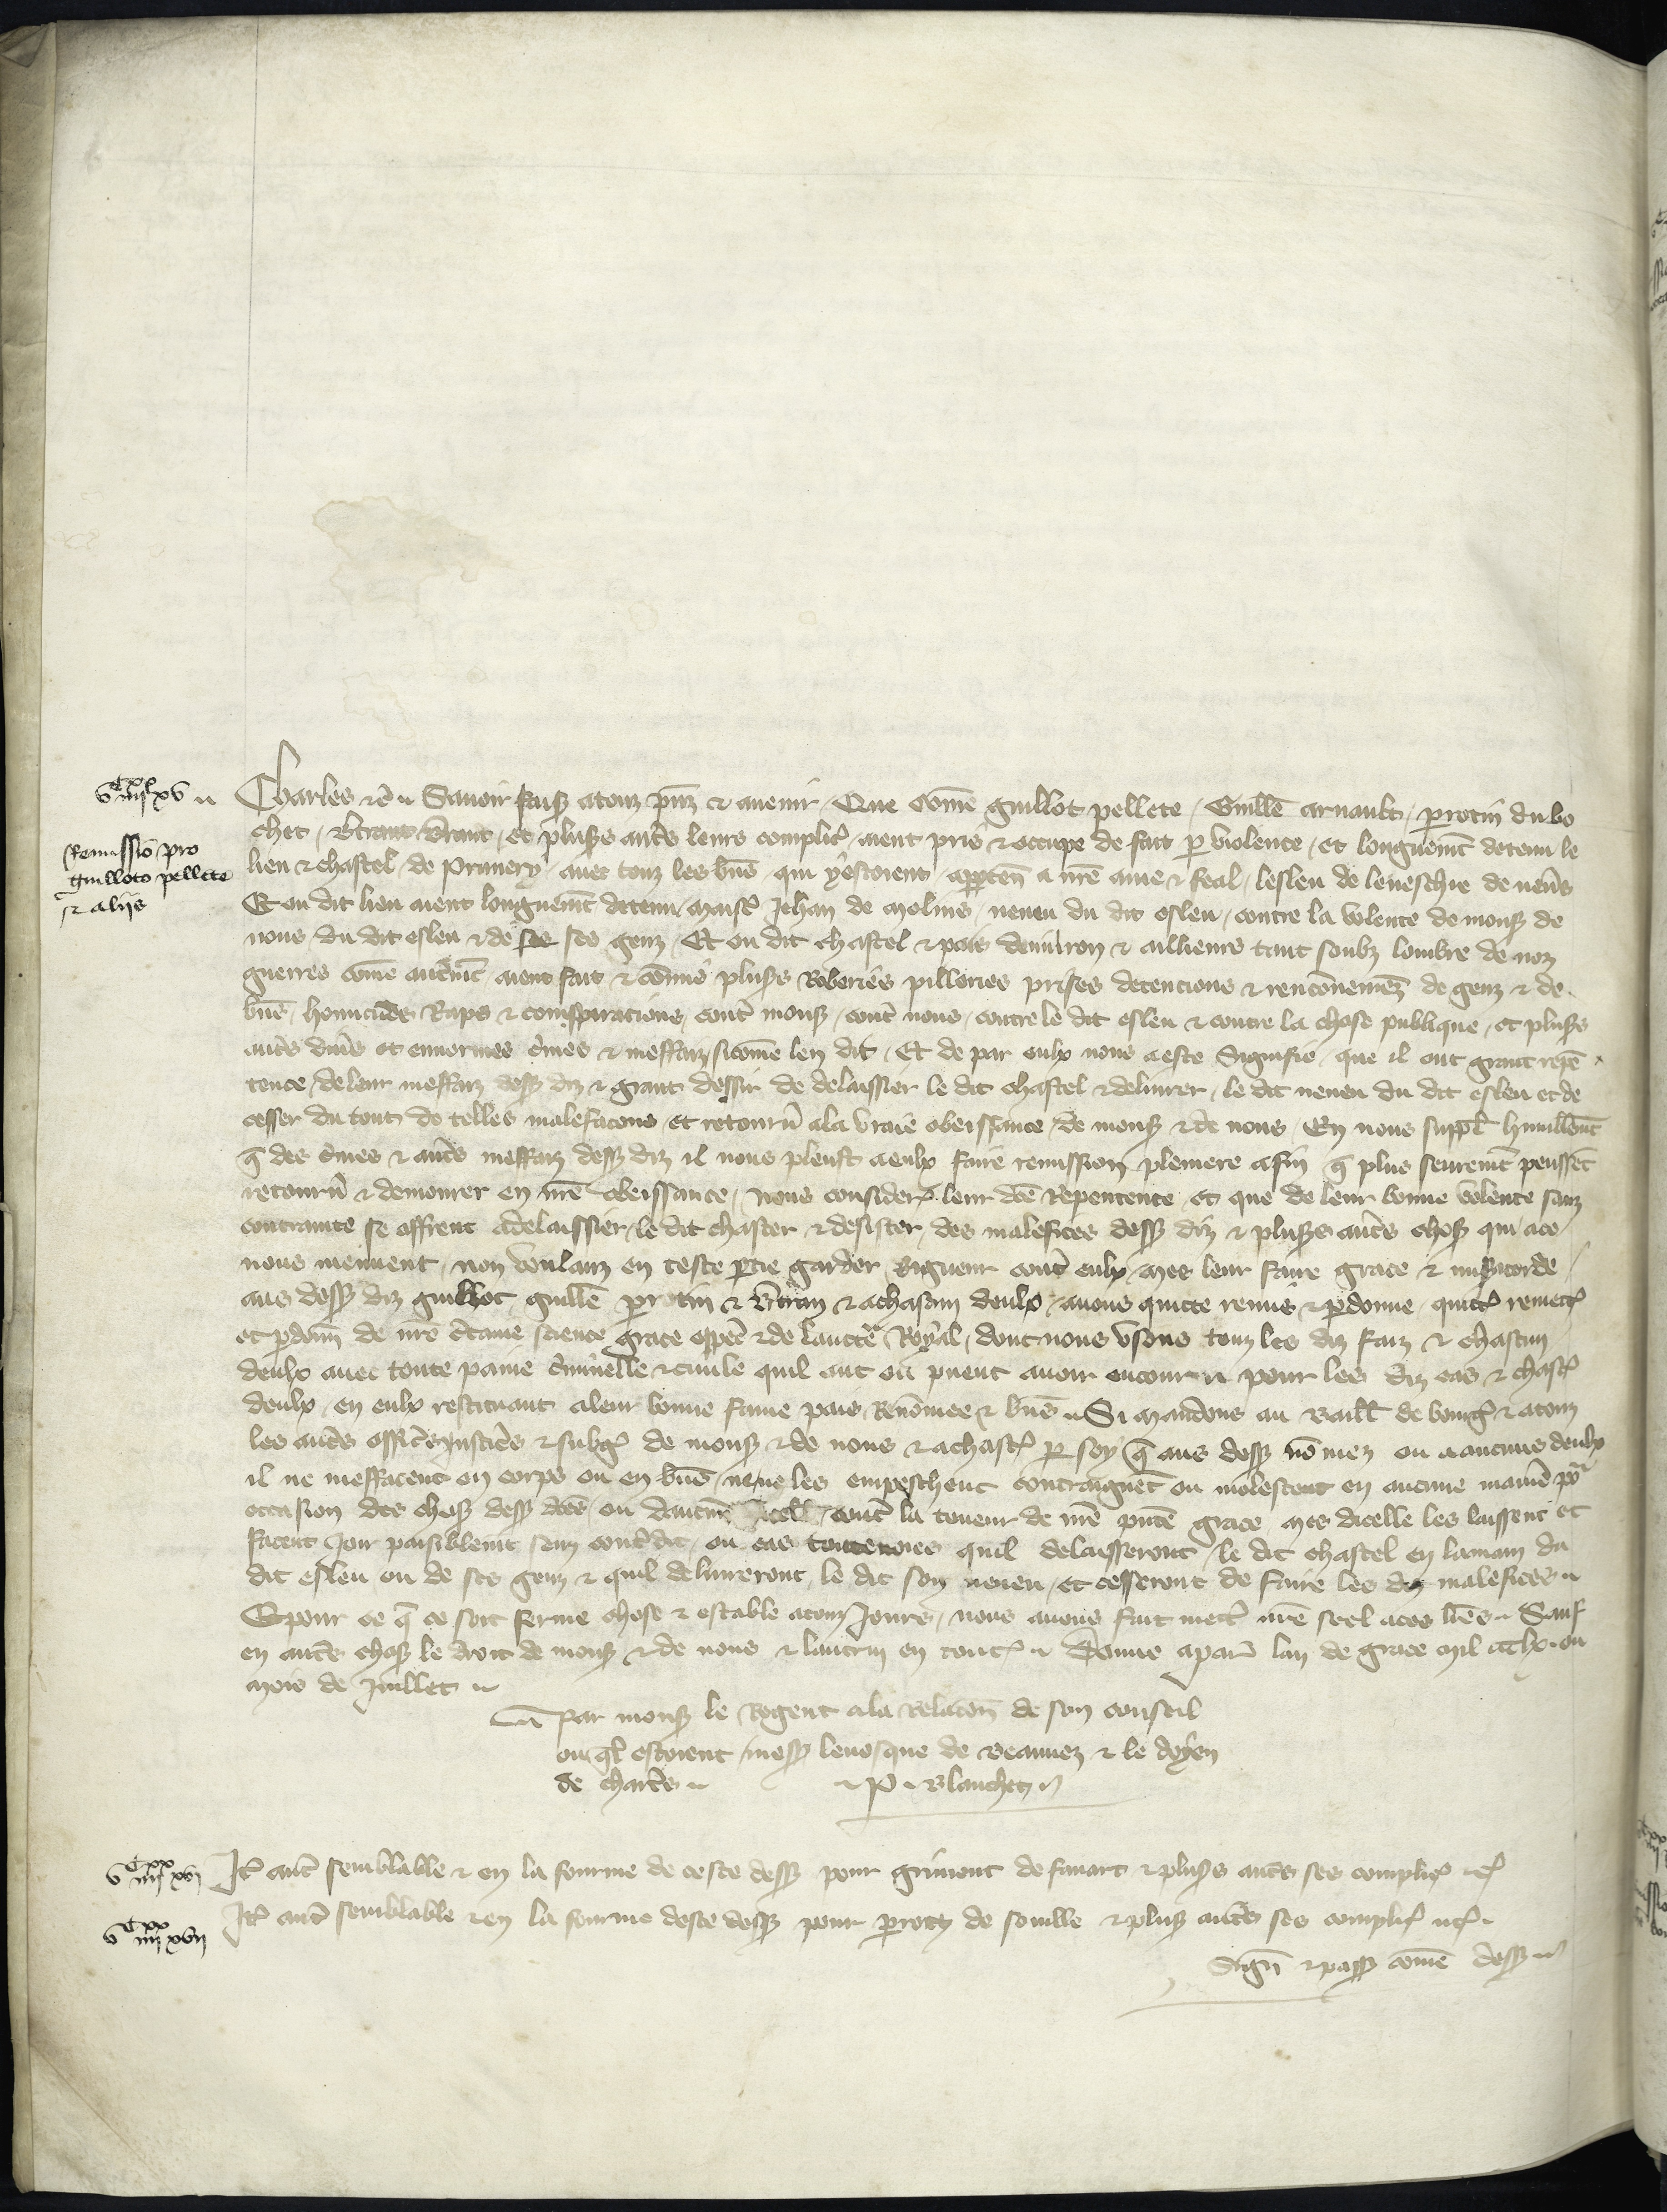 v^C IIII^XX XV
Remissio pro
guilloto pellete
et aliis
Charles etc. Savoir faisons a touz presenz et avenir Que comme guillot pellete, Guillem arnault, perotin du bo
chet, Bertran, et plusieurs autres leurs complices aient pris et occupe de fait par violence, et longuement detenu le
lieu et chastel de Prunery, avec touz les biens qui y estoient appartenens a nostre ame et feal lesleu de leveschie de nevers
Et ou dit lieu aient longuement detenu maistre Jehan de molins, neveu du dit esleu, contre la volente de monsieur de
nous, du dit esleu et de ses genz, Et ou dit chastel et pais denviron et ailleurs tant soubz lombre de noz
guerres comme autrement aient fait et commis plusieurs Roberies pilleries prises detencions et renconnemens de genz et de
biens, homicides Raps et conspiracions contre monsieur, contre nous, contre le dit esleu et contre la chose publique, et plusieurs
autres divers et enormes crimes et meffaiz sicomme len dit, Et de par eulx nous a este Signifie que il ont grant repen
tence de leur meffaiz dessus diz et grant dessir de delaissier le dit chastel et delivrer le dit neveu du dit esleu et de
cesser du tout de telles malefacons, et retourner a la vraie obeissance de monsieur et de nous, En nous suppliant humblement
que des crimes et autres meffaiz dessus diz il nous pleust a eulx faire remission pleniere afin que plus seurement peussent
retourner et demourer en nostre obeissance, Nous considerans leur dicte Repentence et que de leur bonne volente sanz
contrainte se offrent a delaissier le dit chastel et desister des malefices dessus diz et plusieurs autres choses qui a ce
nous meuvent, non voulanz en ceste partie garder Rigueur contre eulx mes leur faire grace et misericorde
aus dessus diz guillot, guillem perotin et Bertran et a chascun deulx, avons quicte remis et pardonne, quictons remectons
et pardonnons de nostre certaine science grace especial et de lauctorite Royal, dont nous usons touz les diz faiz et chascun
deulx avec toute paine criminelle et civile quil ont ou puent avoir encouru pour les diz cas et chascun
deulx, en eulx restituant a leur bonne fame pais, Renommee et biens. Si mandons au Bailli de bourges et a touz
les autres officiers, justiciers et subgez de monsieur et de nous et a chascun par soy que aus dessus nommez ou a aucuns deulx
il ne meffacent en corps ou en biens, ne ne les empeschent contraignent ou molestent en aucune maniere pour
occasion des choses dessus dictes ou daucune dicelles, contre la teneur de nostre presente grace, mes dicelle les laissent et
facent Joir paisiblement senz contredit, ou cas toutevoies quil delaisseront le dit chastel en la main du
dit esleu ou de ses genz et quil delivreront le dit son neveu, et cesseront de faire les diz malefices
Et pour ce que ce soit ferme chose et estable a touz Jours, nous avons fait mectre nostre seel a ces lettres. Sauf
en autres choses le droit de monsieur et de nous et lautrui en toutes. Donne a paris lan de grace mil CCC LX ou
mois de Juillet
Par monsieur le Regent a la Relacion de son conseil
ouquel estoient messeigneurs levesque de Beauvez et le doyen
de chartres. P. Blanchet
v^C IIII^XX XVI
Item autre semblable et en la fourme de ceste dessus pour grimont de favart et plusieurs autres ses complices etc.
v^C IIII^XX XVII
Item autre semblable et en la fourme deste dessus pour perotin de souille et plusieurs autres ses complices etc.
Signee et passee comme dessus